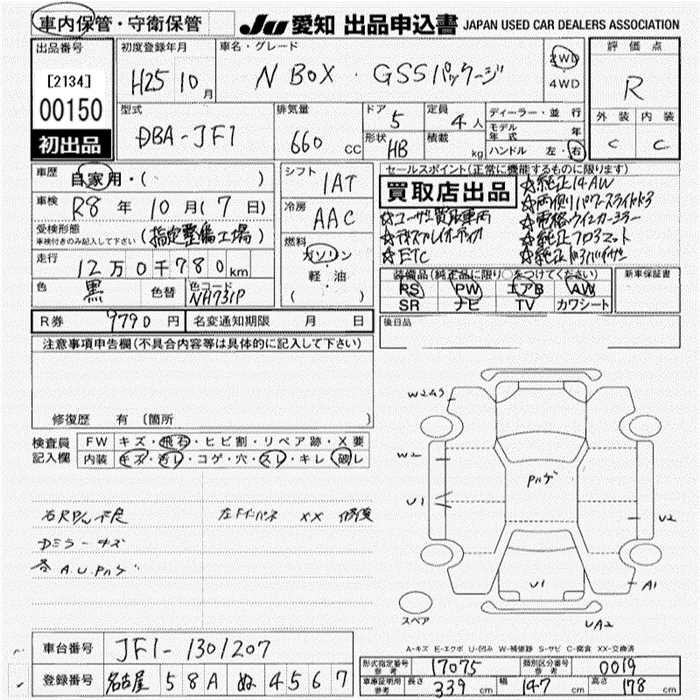 車内保管・守衛保管
JU 愛知 出品申込書 JAPAN USED CAR DEALERS ASSOCIATION
出品番号 初度登録年月 車名・グレード 評価点
[2134]
00150
初出品
H25 10月 N BOX・GSSパッケージ 2WD
4WD R
型式 排気量 ドア 5 定員 4人 ディーラー・並行 外装 内装
DBA-JF1 660 CC 形状 HB 積載 kg モデル年式 年 C C
ハンドル 左・右
車歴 自家用・( ) シフト 1AT セールスポイント(正常に機能するものに限ります)
車検 R8年 10月 (7日) 冷房 AAC 買取店出品 ☆純正14AW
☆両側パワースライドドア
受検形態 (指定整備工場) ☆ユーザー買取車両 ☆電格ウィンカーミラー
車検付きのみ記入して下さい
燃料 ガソリン ☆ディスプレイオーディオ ☆純正フロアマット
走行 12万0千780km 軽・油 ☆ETC ☆純正ドアバイザー
色 黒 色替 色コード NH731P ( )
装備品(純正品に限り○をつけてください) 新車保証書
PS PW エアB AW
SR ナビ TV カワシート
R券 9790円 名変通知期限 月 日 後日品
注意事項申告欄(不具合内容等は具体的に記入して下さい)
修復歴 有(箇所
検査員 FW キズ・飛石・ヒビ割・リペア跡・X要
記入欄 内装 キズ・汚レ・コゲ・穴・スレ・キレ・破レ
Dミラーキズ
各A.U.Pハゲ
W2
W2
U1
Pハゲ
U2
U1
A1
UA2
スペア
A-キズ E-エクボ U-凹み W-補修跡 S-サビ C-腐食 XX-交換済
車台番号 JF1-1301207
登録番号 名古屋 58A ぬ 4567
形式指定番号 参考 17075 類別区分番号 参考 0019
車庫証明用 参考 長さ 339cm 幅 147cm 高さ 178cm